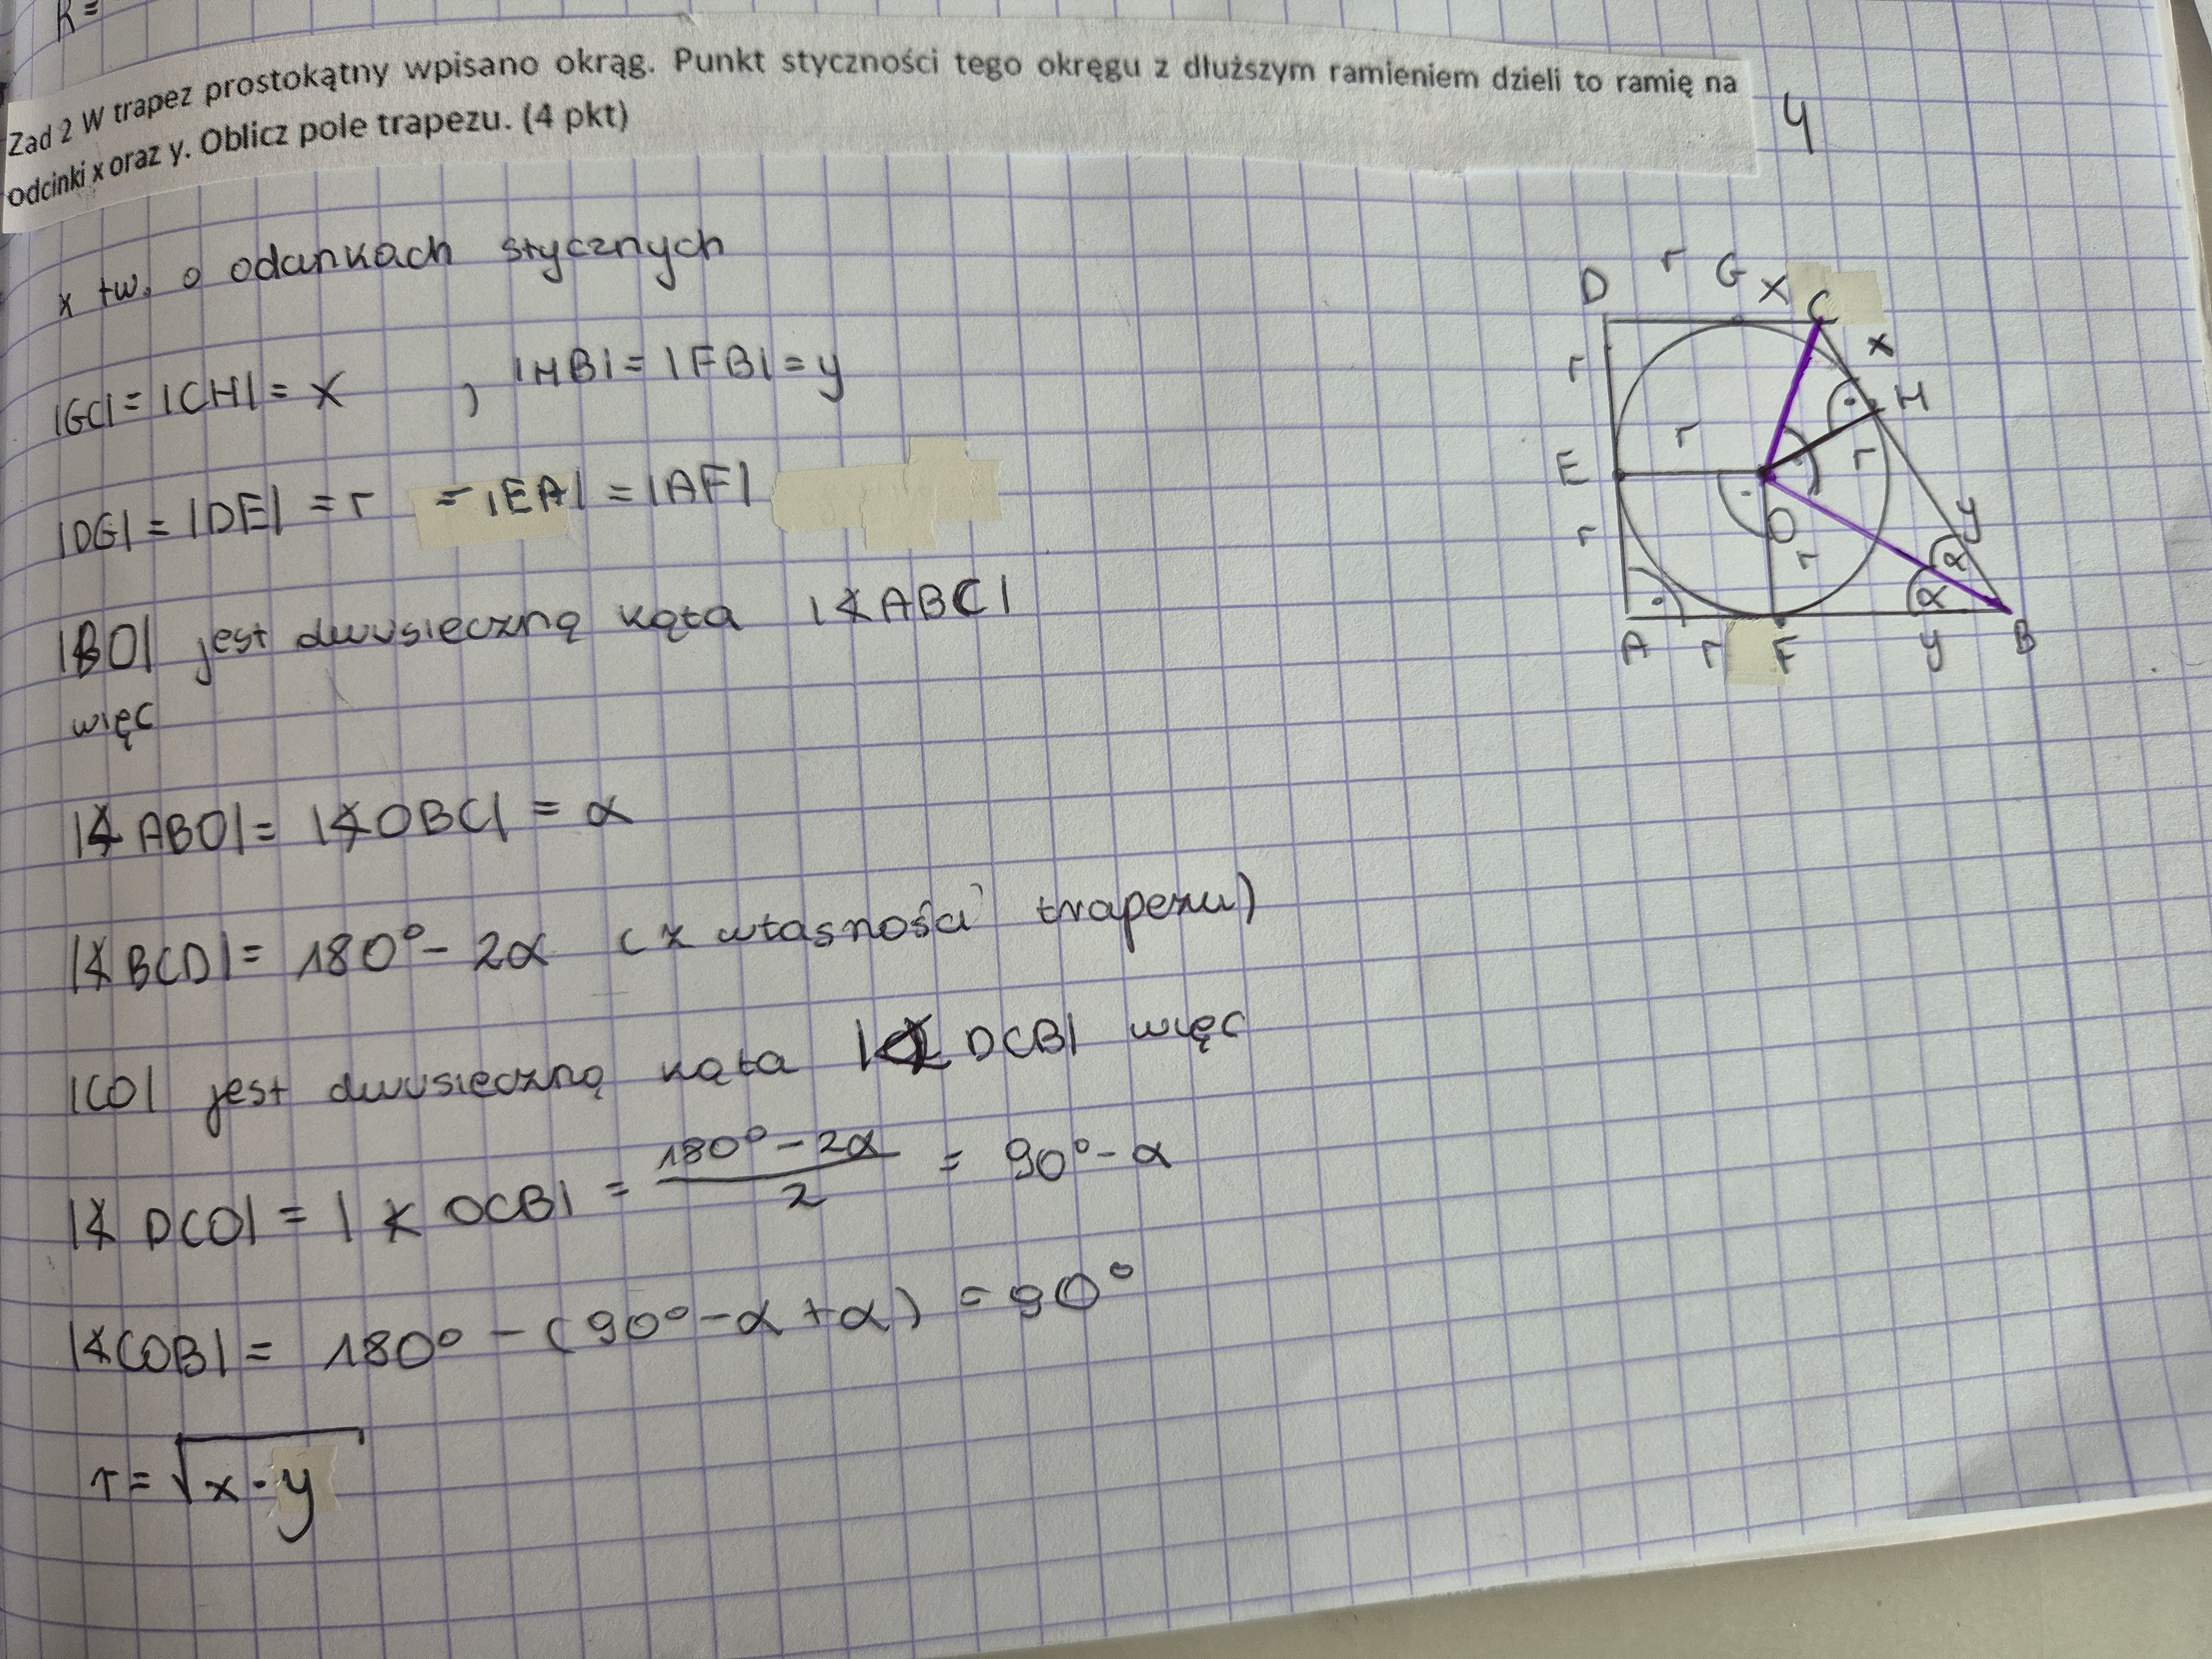 R =
Zad 2 W trapez prostokątny wpisano okrąg. Punkt styczności tego okręgu z dłuższym ramieniem dzieli to ramię na
odcinki x oraz y. Oblicz pole trapezu. (4 pkt)
4
z tw. o odcinkach stycznych
|GC| = |CH| = x , |HB| = |FB| = y
|DG| = |DE| = r = |EA| = |AF|
|BO| jest dwusieczną kąta |∢ABC|
więc
|∢ABO| = |∢OBC| = α
|∢BCD| = 180° - 2α (z własności trapezu)
|CO| jest dwusieczną kąta |∢DCB| więc
|∢DCO| = |∢OCB| = \frac{180° - 2α}{2} = 90° - α
|∢COB| = 180° - (90° - α + α) = 90°
r = √(x · y)
D r G x C
x
r
H
r
r
E
O
y
r
r
α
α
A r F y B